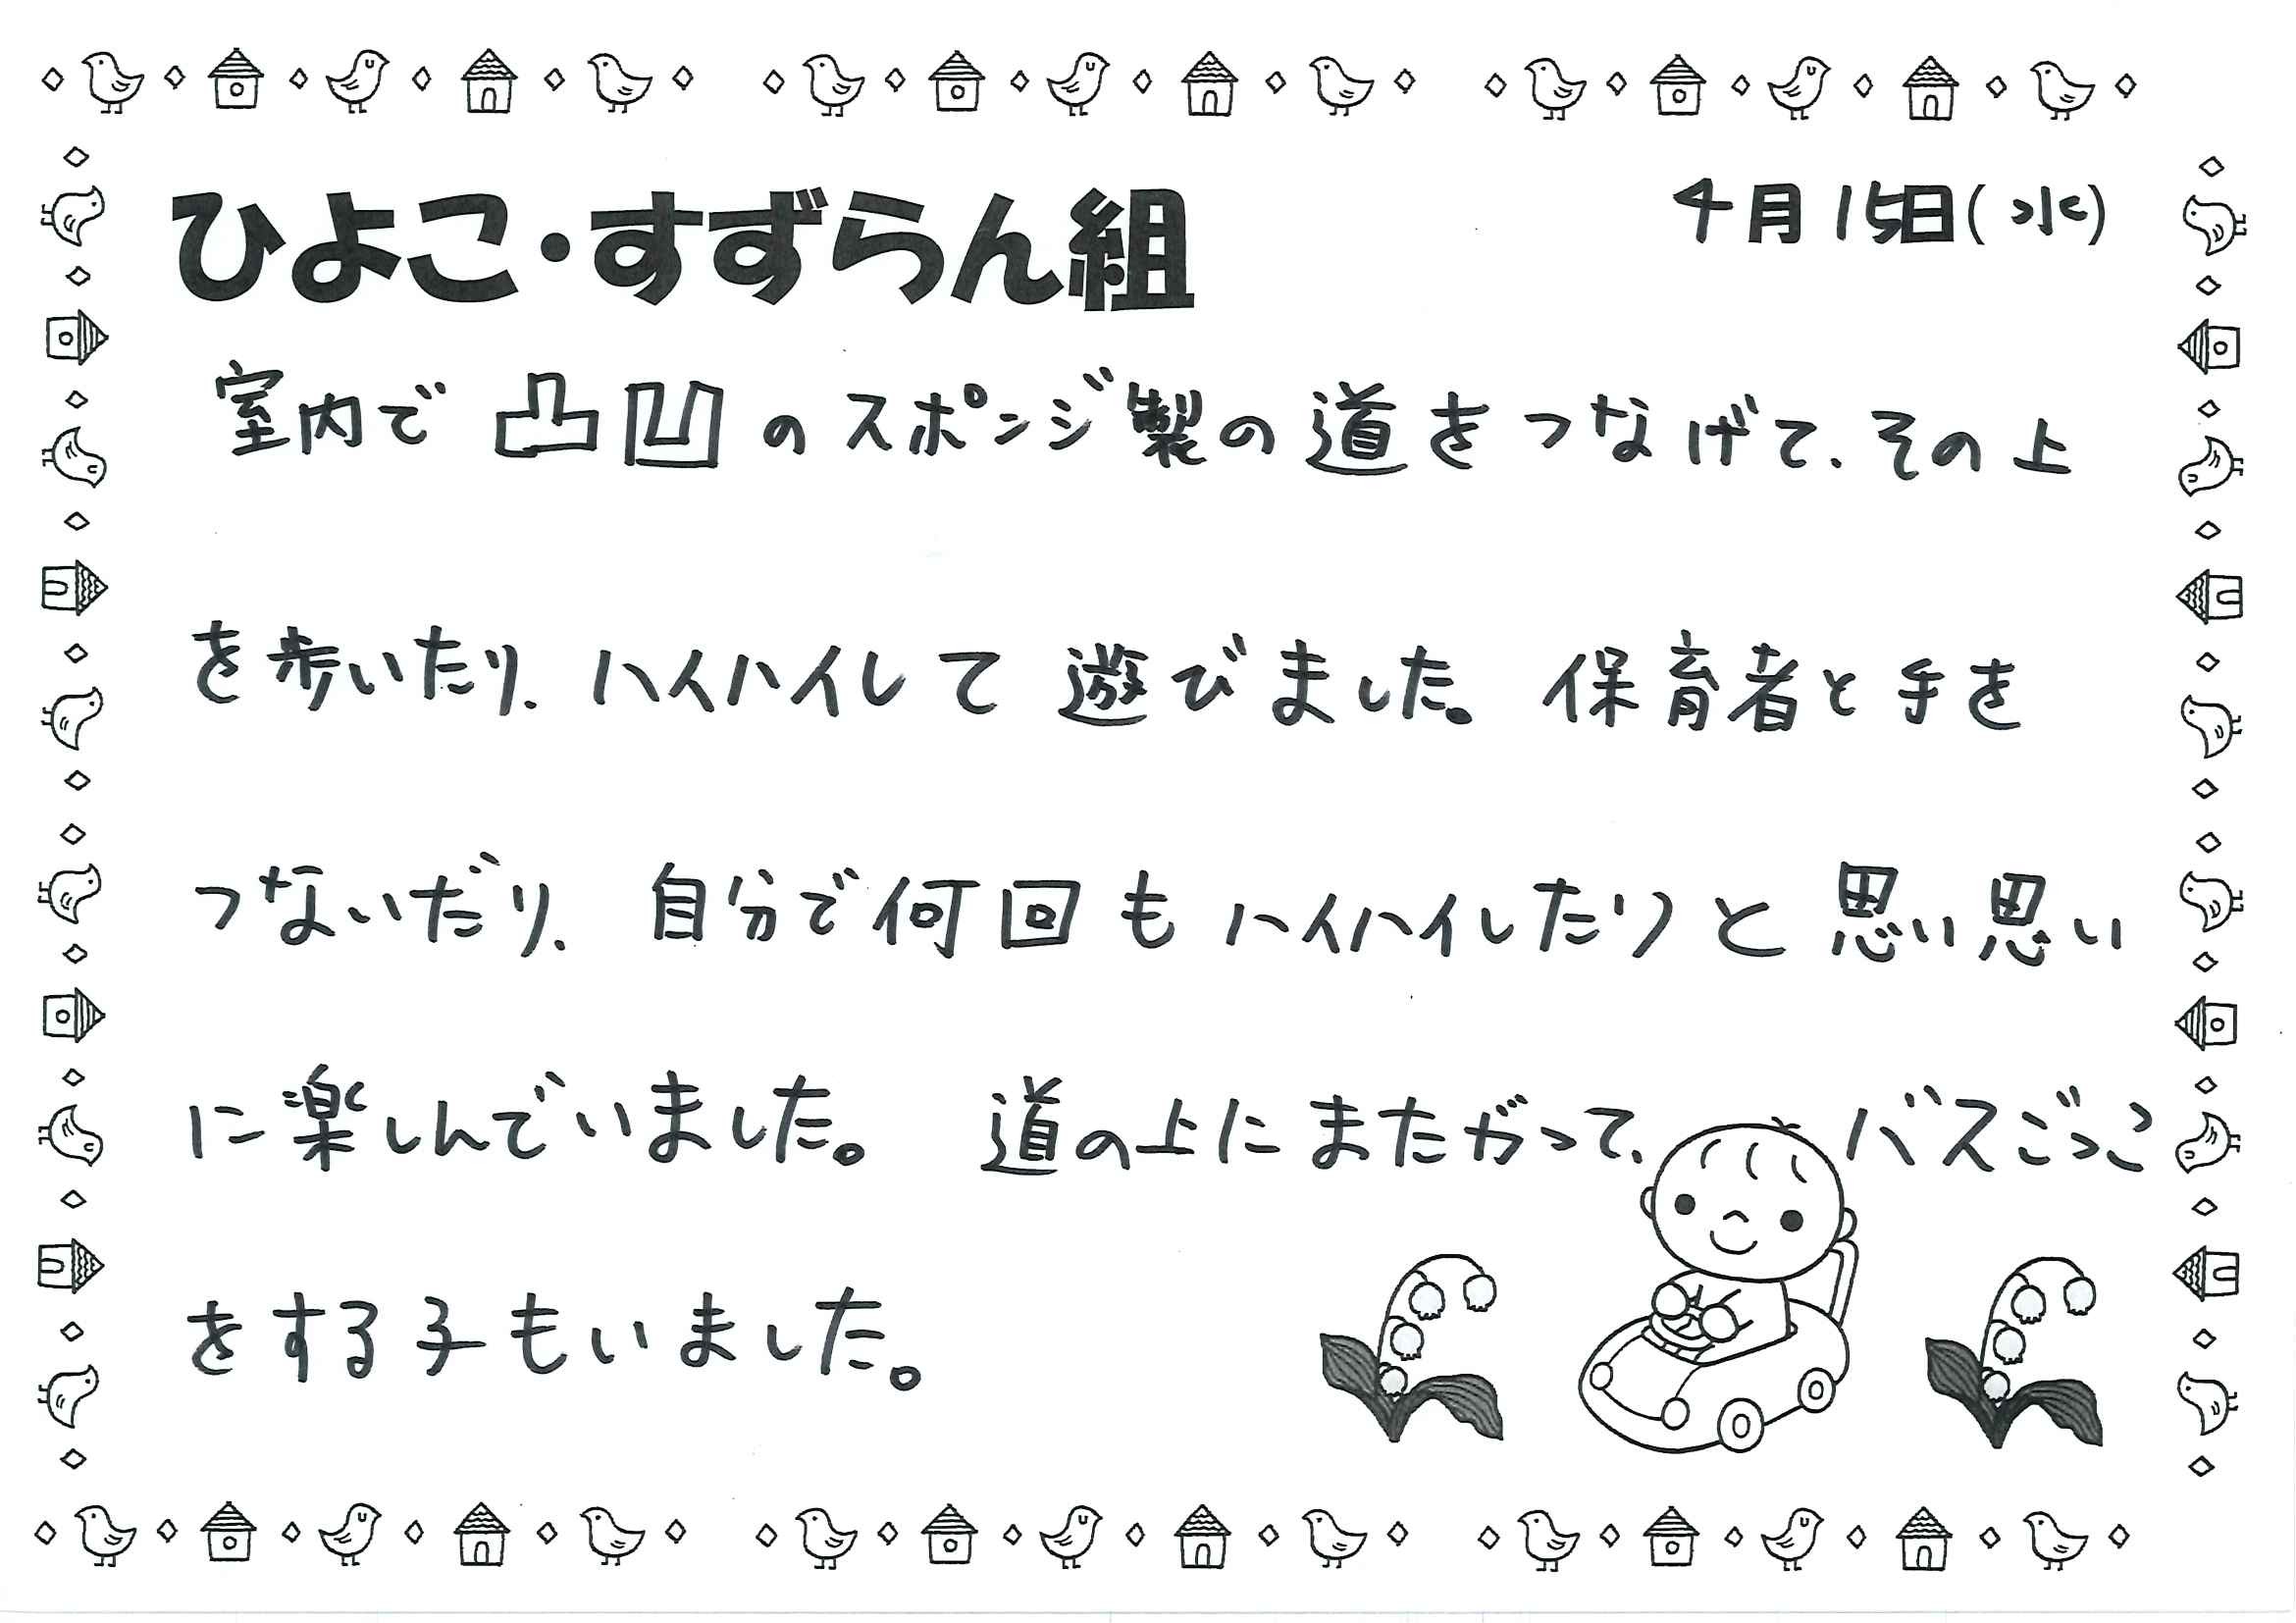 ひよこ・すずらん組
4月15日(水)
室内で凸凹のスポンジ製の道をつなげて、その上
を歩いたり、ハイハイして遊びました。保育者と手を
つないだり、自分で何回もハイハイしたりと思い思い
に楽しんでいました。道の上にまたがって、バスごっこ
をする子もいました。